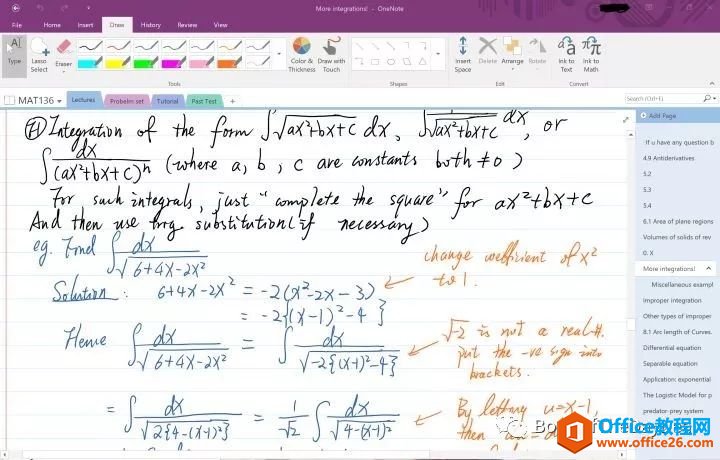 More integrations! - OneNote
File Home Insert Draw History Review View
Type Lasso Select Eraser Color & Thickness Draw with Touch Shapes Insert Space Delete Arrange Rotate Ink to Text Ink to Math
Tools Shapes Edit Convert
MAT136 Lectures Probelm set Tutorial Past Test + Search (Ctrl+E)
Add Page
If u have any question b
4.9 Antiderivatives
5.2
5.3
5.4
6.1 Area of plane regions
Volumes of solids of rev
0. X
More integrations!
Miscellaneous exampl
Improper integration
Other types of improper
8.1 Arc length of Curves.
Differential equation
Separable equation
Application: exponential
The Logistic Model for p
predator-prey system
Integration of the form ∫√(ax²+bx+c) dx, ∫1/√(ax²+bx+c) dx, or
∫dx/(ax²+bx+c)ⁿ (where a, b, c are constants both ≠0)
For such integrals, just "complete the square" for ax²+bx+c
And then use trig. substitution (if necessary)
eg. Find ∫dx/√(6+4x-2x²)
change coefficient of x²
to 1.
Solution: 6+4x-2x² = -2(x²-2x-3)
= -2{(x-1)²-4}
Hence ∫dx/√(6+4x-2x²) = ∫dx/√(-2{(x-1)²-4})
√-2 is not a real #.
put the -ve sign into
brackets.
= ∫dx/√(2{4-(x-1)²}) = 1/√2 ∫dx/√(4-(x-1)²)
By letting u=x-1,
then
Office教程网
www.office26.com